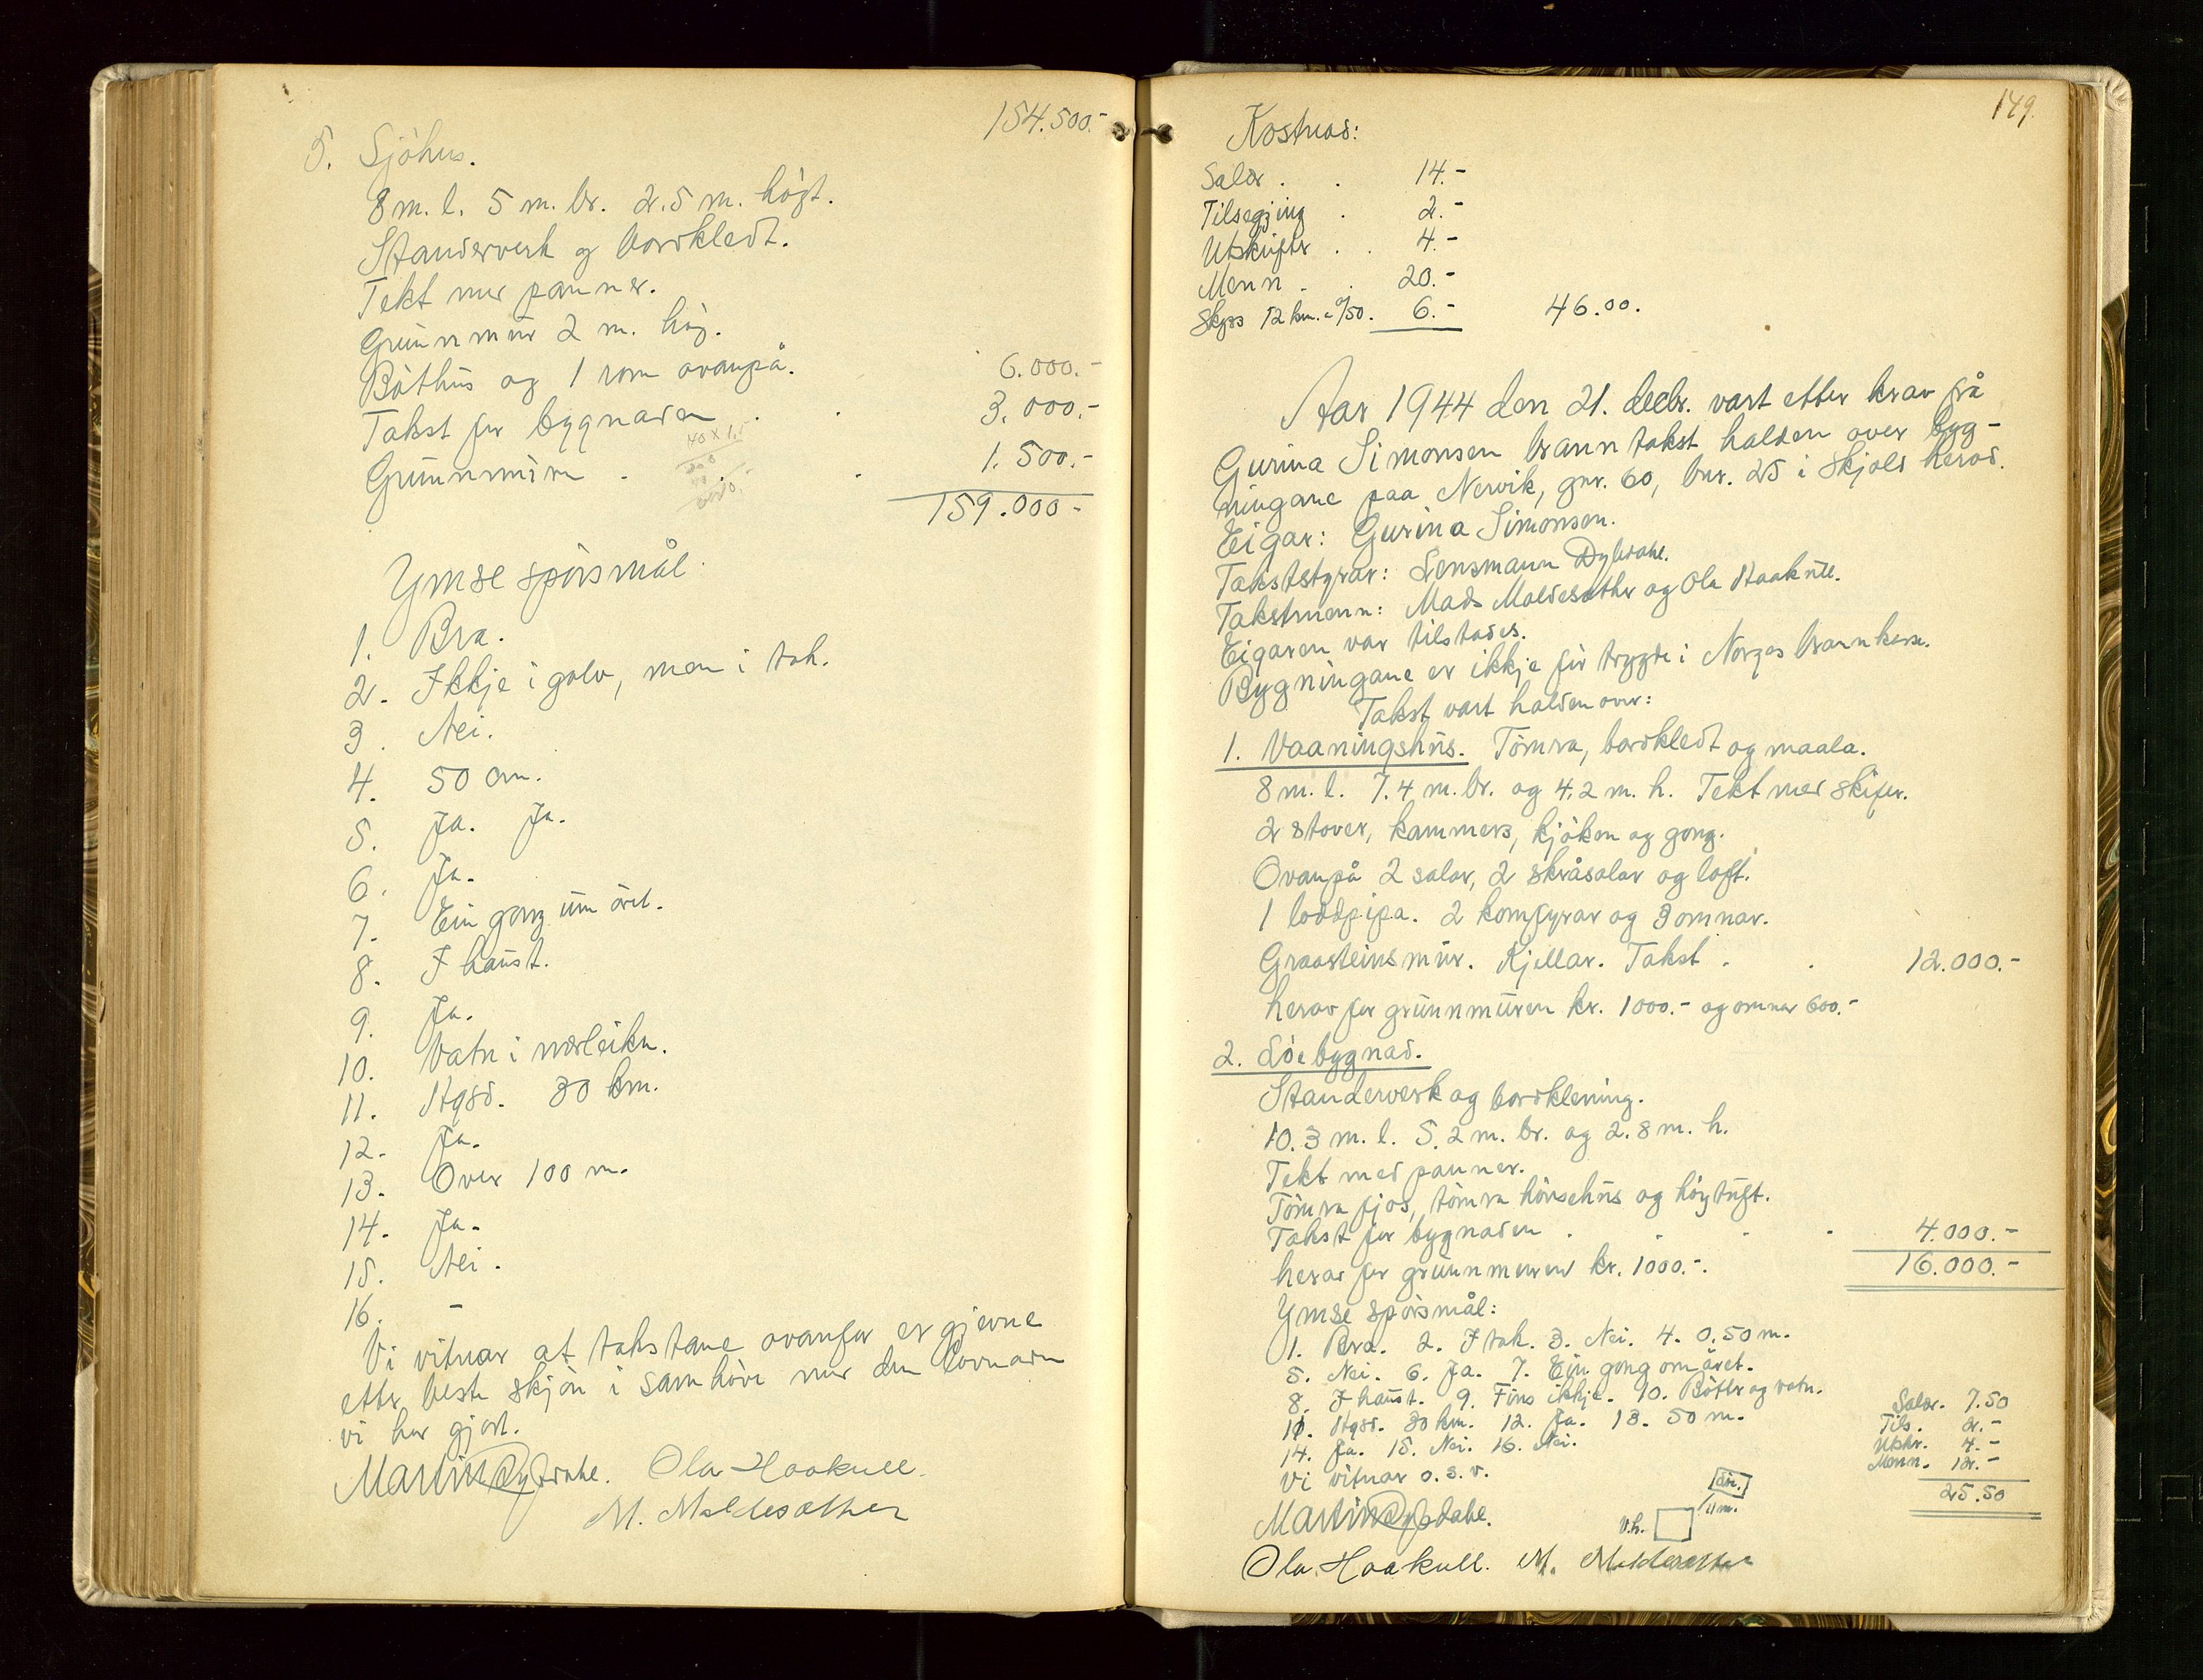 154.500.-
5. Sjöhus.
8 m. l. 5 m. br. 2.5 m. högt.
Standerverk og bordkledt.
Tekt med panner.
Grunnmur 2 m. høg.
Båthus og 1 rom ovanpå. 6.000.-
Takst for bygnaden . . 3.000.-
Grunnmuren . . 1.500.-
40 x 1,5
159.000-
Ymse spörsmål.
1. Bra.
2. Ikkje i golv, men i tak.
3. Nei.
4. 50 cm.
5. Ja. Ja.
6. Ja.
7. Ein gong um året.
8. I haust.
9. Ja.
10. Vatn i nærleiken.
11. Hgsd. 30 km.
12. Ja.
13. Over 100 m.
14. Ja.
15. Nei.
16. -
Vi vitnar at takstane ovanfor er gjevne
etter beste skjön i samhöve med den lovnaden
vi har gjort.
Martin Dybdahl. Ola Haakull.
M. Maldesæther
149.
Kostnad:
Salær . . 14.-
Tilsegjing . 2.-
Utskrifter . . 4.-
Menn . . 20.-
Skyss 12 km. a 0/50. 6.- 46.00.
Aar 1944 den 21. decbr. vart etter krav frå
Gurina Simonsen branntakst halden over byg-
ningane paa Nervik, gnr. 60, bnr. 25 i Skjold herad.
Eigar: Gurina Simonsen.
Takststyrar: Lensmann Dybdahl.
Takstmenn: Mads Maldesæther og Ola Haakull.
Eigaren var tilstades.
Bygningane er ikkje för trygde i Norges brannkasse.
Takst vart halden over:
1. Vaaningshus. Tömra, bordkledt og maala.
8 m. l. 7.4 m. br. og 4.2 m. h. Tekt med skifer.
2 stover, kammers, kjöken og gong.
Ovanpå 2 salar, 2 skråsalar og loft.
1 loddpipa. 2 komfyrar og 3 omnar.
Graasteinsmur. Kjellar. Takst . . 12.000.-
herav for grunnmuren kr. 1000.- og omnar 600.-
2. Löebygnad.
Standerverk og bordklening.
10.3 m. l. 5.2 m. br. og 2.8 m. h.
Tekt med panner.
Tömra fjos, tömra hönsehus og höytuft.
Takst for bygnaden . . . . 4.000.-
herav for grunnmuren kr. 1000.-. 16.000.-
Ymse spörsmål:
1. Bra. 2. I tak. 3. Nei. 4. 0.50 m.
5. Nei. 6. Ja. 7. Ein gong om året.
8. I haust. 9. Fins ikkje. 10. Bötter og vatn.
11. Hgsd. 30 km. 12. Ja. 13. 50 m.
14. Ja. 15. Nei. 16. Nei.
Vi vitnar o. s. v.
Salær. 7.50
Tils. 2.-
Utskr. 4.-
Menn. 12.-
25.50
Löe.
11 m.
V.h.
Martin Dybdahl.
Ola Haakull. M. Maldesæther